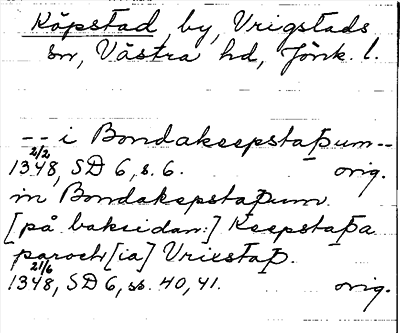 Köpstad by, Vrigstads
sn, Västra hd, Jönk. l.
-- i Bondakeepstaþum --
1348, 2/2 SD 6, s. 6. orig.
in Bondakepstaþum.
[på baksidan:] Keepstaþa
paroch[ia] Vriestaþ.
1348, 21/6 SD 6, ss. 40, 41. orig.